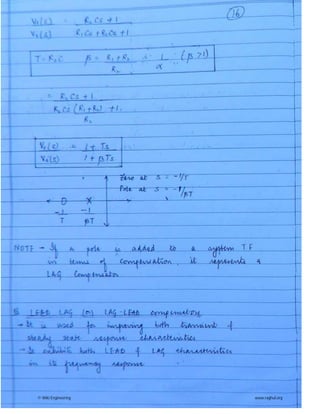 16
V₀(s) = R₂Cs + 1
Vᵢ(s) R₁Cs + R₂Cs + 1
T = R₂C β = R₁ + R₂ = 1 (β > 1)
R₂ α
= R₂Cs + 1
R₂Cs (R₁ + R₂) + 1
R₂
V₀(s) = 1 + Ts
Vᵢ(s) 1 + βTs
Zero at s = -1/T
Pole at s = -1/βT
O X
-1 -1
T βT
NOTE - If a pole is added to a system T.F
in terms of compensation, it represents a
LAG Compensator
LEAD LAG (or) LAG-LEAD compensators
- It is used for improving both transient &
steady state response characteristics
- It exhibits both LEAD & LAG characteristics
in its frequency response
Engineering www.raghul.org